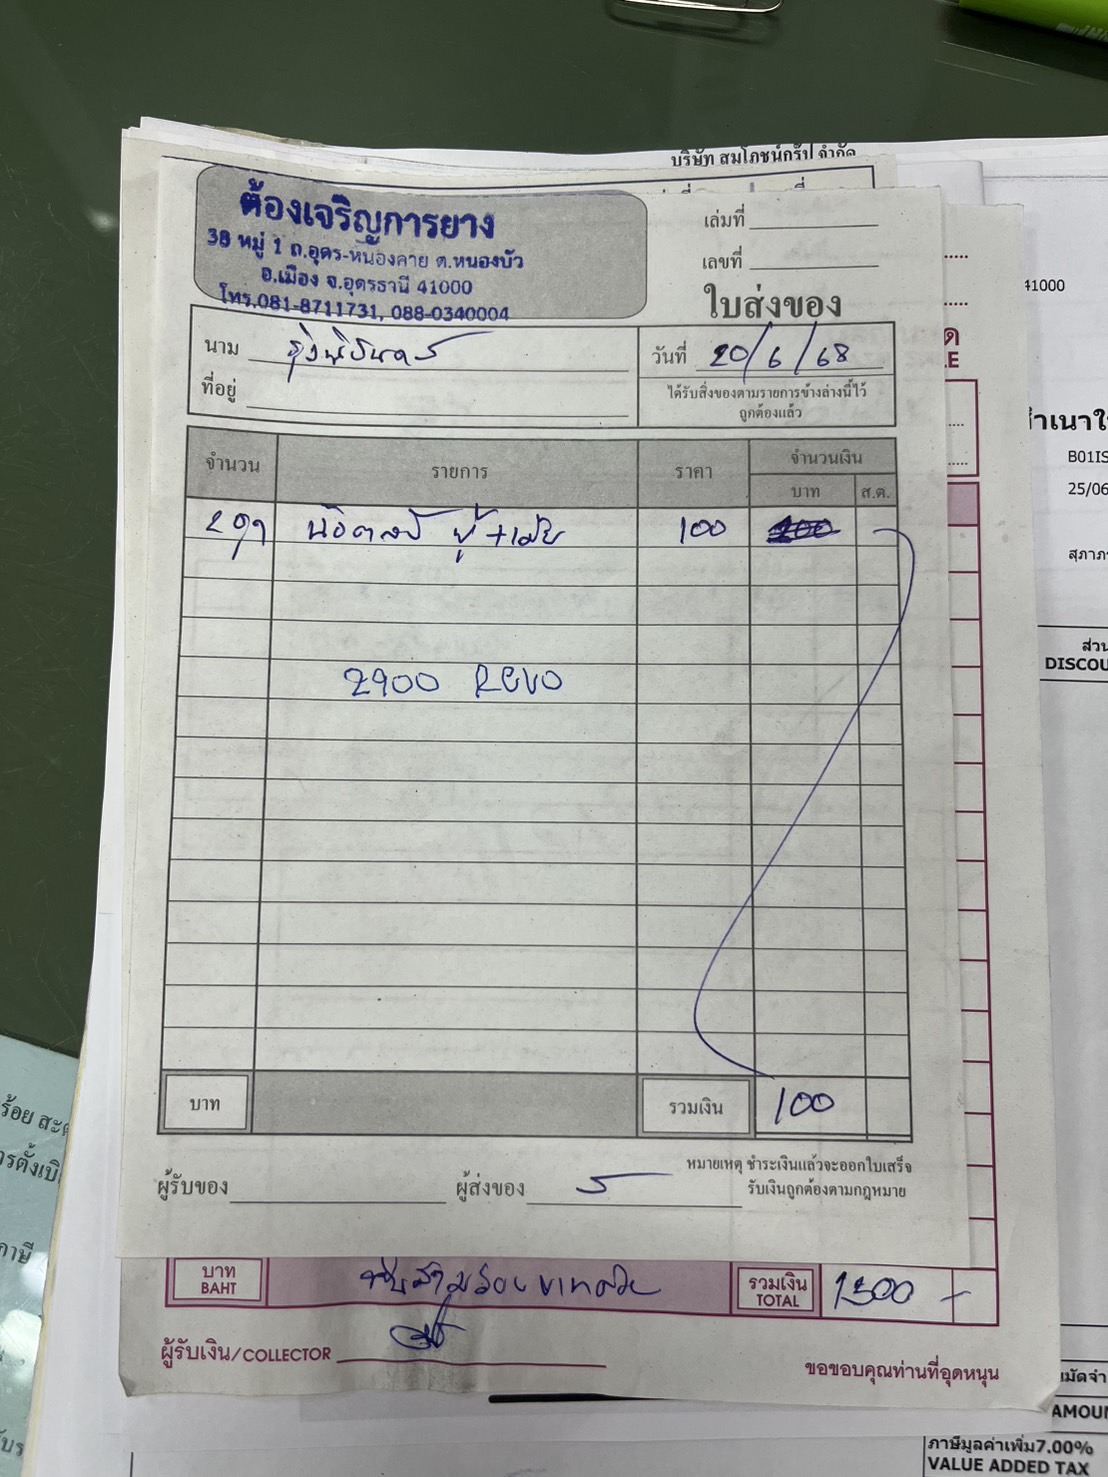 บริษัท สมโภชน์กรุ๊ป จำกัด
ต้องเจริญการยาง
38 หมู่ 1 ถ.อุดร-หนองคาย ต.หนองบัว
อ.เมือง จ.อุดรธานี 41000
โทร.081-8711731, 088-0340004
เล่มที่
เลขที่
ใบส่งของ
41000
นาม
วันที่ 20/6/68
ที่อยู่
ได้รับสิ่งของตามรายการข้างล่างนี้ไว้
ถูกต้องแล้ว
จำนวน รายการ ราคา จำนวนเงิน
บาท ส.ต.
2 น๊อตล้อ ผู้+เมีย 100 200 -
B01IS
25/06
ส่วน
DISCOU
2900 REVO
บาท รวมเงิน 100
หมายเหตุ ชำระเงินแล้วจะออกใบเสร็จ
รับเงินถูกต้องตามกฎหมาย
ผู้รับของ ผู้ส่งของ
บาท
BAHT
พันสามร้อยบาทถ้วน
รวมเงิน
TOTAL
1300 -
ผู้รับเงิน/COLLECTOR
ขอขอบคุณท่านที่อุดหนุน
AMOUN
ภาษีมูลค่าเพิ่ม7.00%
VALUE ADDED TAX